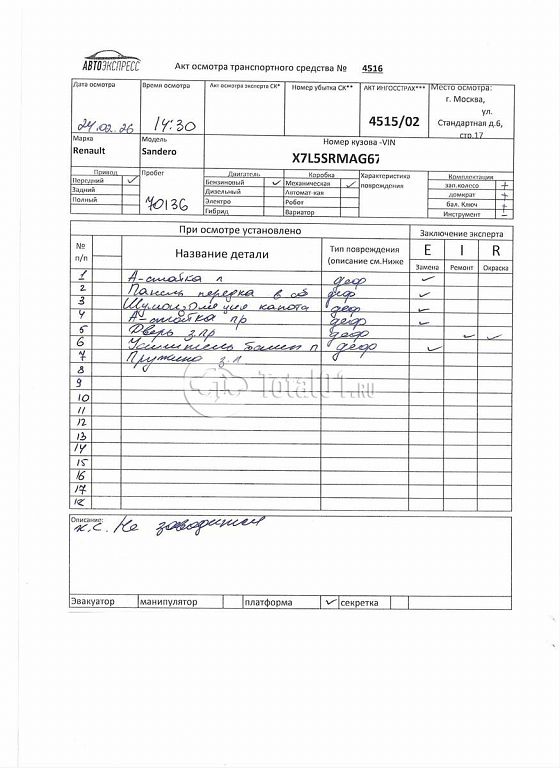 АВТОЭКСПРЕСС
Акт осмотра транспортного средства № 4516
Дата осмотра Время осмотра Акт осмотра эксперта СК* Номер убытка СК** АКТ ИНГОССТРАХ*** Место осмотра:
24.02.26 14:30 4515/02 г. Москва,
ул.
Стандартная д.6,
стр.17
Марка Модель Номер кузова -VIN
Renault Sandero X7L5SRMAG67
Привод Пробег Двигатель Коробка Характеристика Комплектация
Передний Бензиновый Механическая повреждения зап.колесо +
Задний Дизельный Автомат-кая домкрат +
Полный 70136 Электро Робот бал. Ключ +
Гибрид Вариатор Инструмент -
При осмотре установлено Заключение эксперта
№ п/п Название детали Тип повреждения (описание см.Ниже E I R
Замена Ремонт Окраска
1 А-стойка л деф
2 Панель передка в сб деф
3 Шумоизоляция капота деф
4 А-стойка пр деф
5 Дверь з.пр деф
6 Усилитель п деф
7 Пружина з.л
8
9
10
11
12
13
14
15
16
17
18
Total01.ru
Описание:
Не заводится
Эвакуатор манипулятор платформа секретка